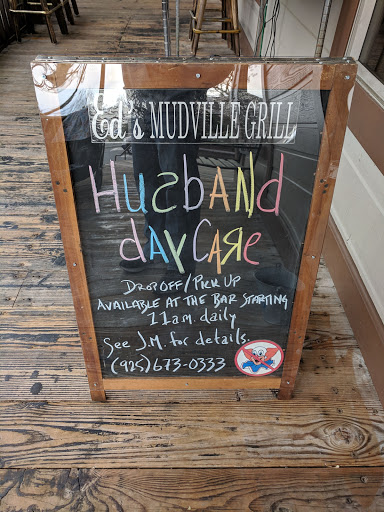 Ed's MUDVILLE GRILL
HusbANd
dAyCARe
DROP OFF/PICK UP
AVAILABLE AT THE BAR STARTING
11am daily
See J.M. for details.
(925) 673-0333